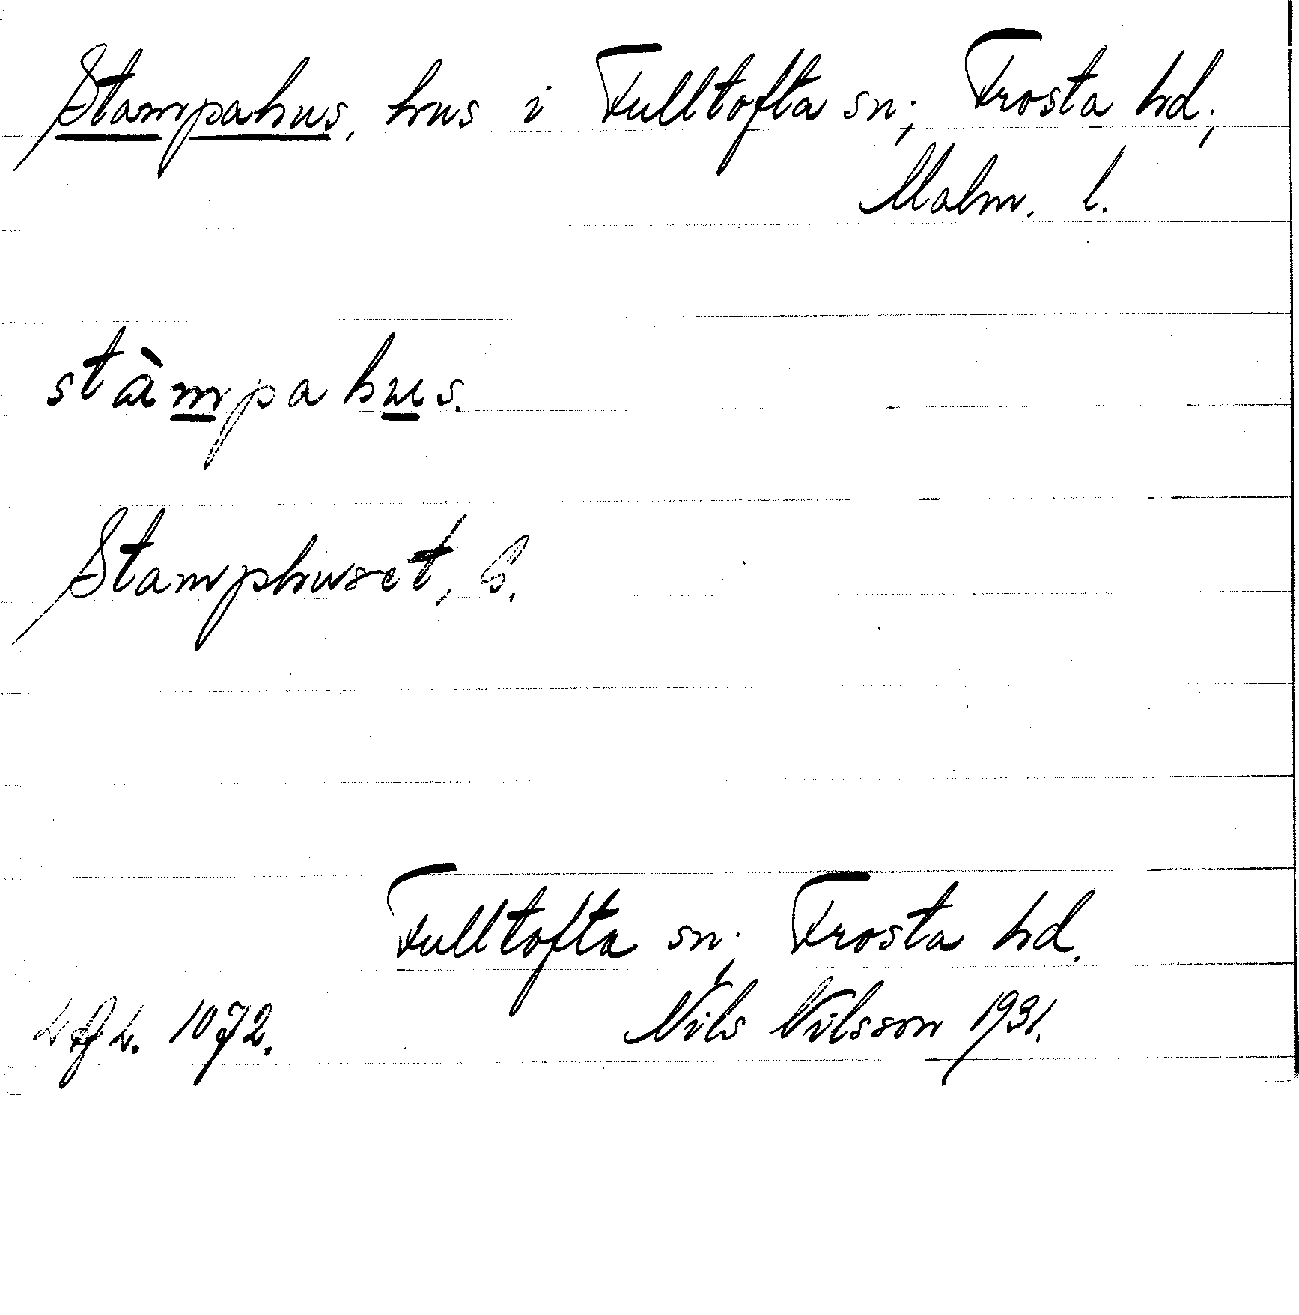 Stampahus, hus i Fulltofta sn; Frosta hd;
Malm. l.
stàmpahus.
Stamphuset, G.
Fulltofta sn; Frosta hd.
1072. Nils Nilsson 1931.